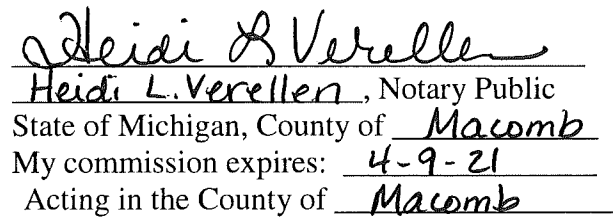 Heidi L Verellen
Heidi L. Verellen, Notary Public
State of Michigan, County of Macomb
My commission expires: 4-9-21
Acting in the County of Macomb